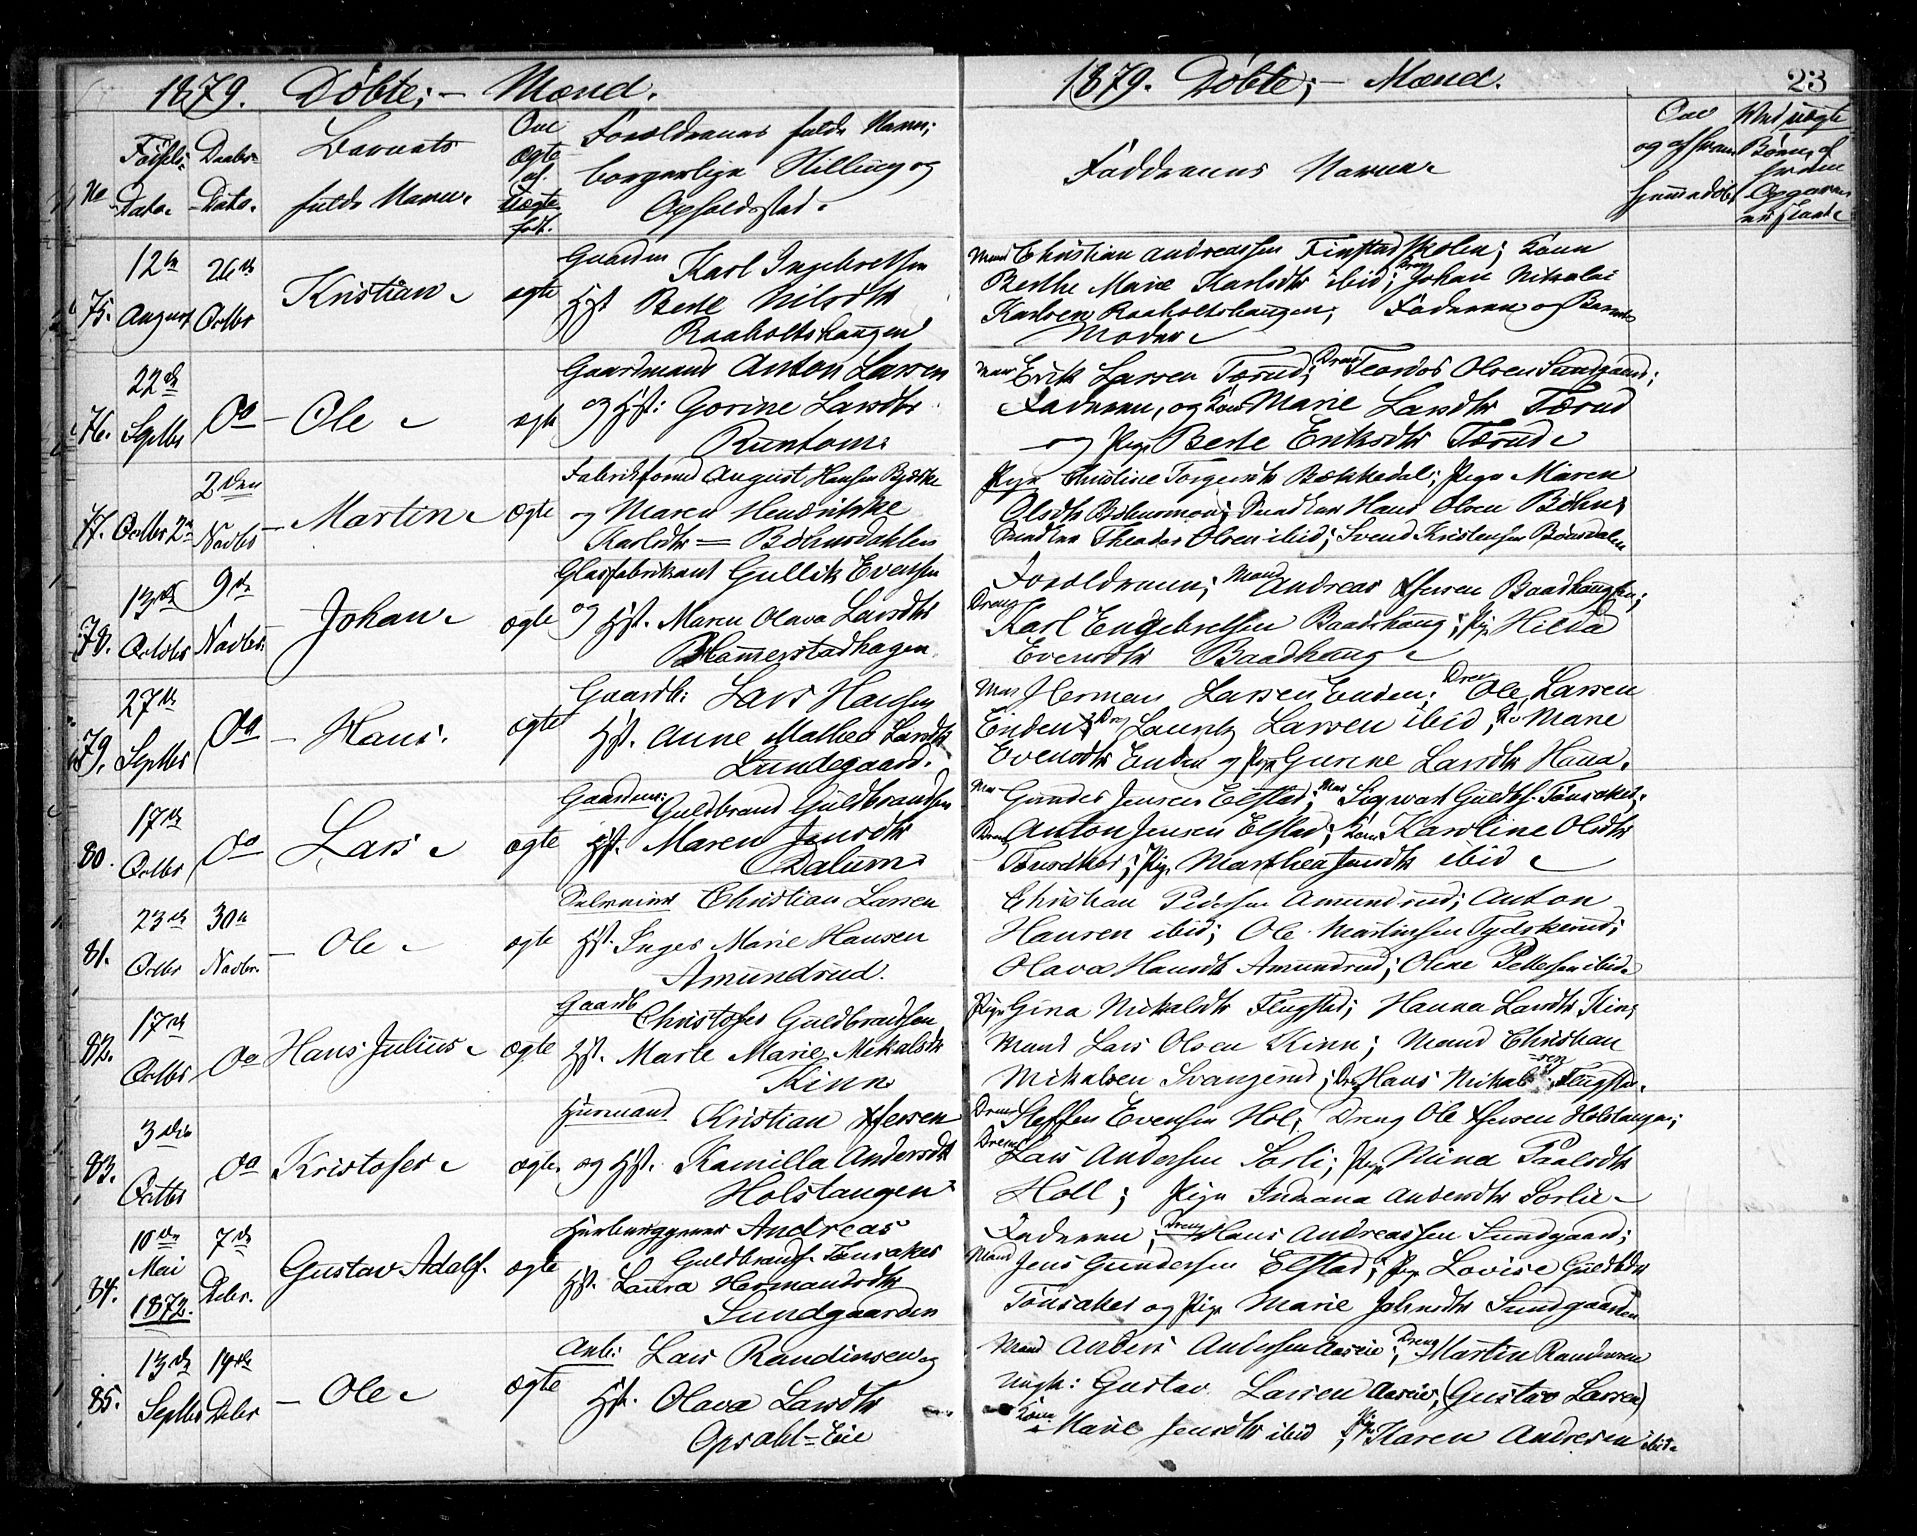 1879. Døbte; — Mænd.
No
Fødsels-Dato.
Daabs-Dato.
Barnets fulde Navn.
Om ægte el. uægte født.
Forældrenes fulde Navn, borgerlige Stilling og Opholdssted.
75.
12te August
26de Octbr
Kristian
ægte
Gaardm Karl Ingebretsen
Hst Berte Nilsdtr
Raaholtshaugen
76.
22de Septbr
Do
— Ole
ægte
Gaardmand Anton Larsen
og Hst: Gorine Larsdtr
Runtom
77.
Octbr 2den
2den Novbr
— Martin
ægte
August Hansen
og Maren Hendrikke
Karlsdtr = Bøhnsdahlen
78.
13de Octobr
9de Novbr.
Johan
ægte
Glasfabrikant Gullik Evensen
og Hst. Maren Olava Larsdtr
Hamerstadhagen
79.
27de Septbr
Do
— Hans.
ægte
Gaardb: Lars Hansen
Hst. Anne Mathea Larsdtr
Lundegaard.
80.
17de Octbr
Do
Lars
ægte
Gaardm: Guldbrand Guldbrandsen
Hst. Maren Jensdtr
Dalum
81.
23de Octbr
30te Novbr.
— Ole
ægte
Christian Larsen
Hst. Inger Marie Hansen
Amundrud.
82.
17de Octbr
Do
Hans Julius
ægte
Gaardb Christofer Guldbrandsen
Hst. Marte Marie Mikalsdtr
Kinn
83.
3die Octbr
Do
Kristofer
ægte.
Huusmand Kristian Ifersen
og Hst. Kamilla Andersdtr
Holstangen
84.
10de Mai 1872.
7de Debr.
Gustav Adolf.
ægte
Andreas
Guldbrands. Tønsaker
Hst. Laura Hermandsdtr
Sundgaarden
85.
13de Septbr
14de Debr
— Ole
ægte
Arb: Lars Randinsen og
Hst. Olava Larsdtr
Opsahl=Eie
1879. Døbte; — Mænd. 23
Faddrenes Navne
Om og af hvem hjemmedøbt
Ved uægte Børn, af hvem Opgaven
Mand Christian Andreassen Finstad Skolen; Kone
Berthe Marie Karlsdtr ibid; Dreng Johan Nikolai
Karlsen Raaholtshaugen; Faderen og Barnets
Moder
Man Erik Larsen Tærud; Dreng Teodor Olsen Sundgaard;
Faderen, og Kone Marie Larsdtr Tærud
og Pige Berte Eriksdtr Tærud
Pige Christine Torgersdtr Bækkedal; Pige Maren
Olsdtr; Hans Olsen Bøhn;
Theodor Olsen ibid; Svend Kristensen Bønsdalen
Forældrene; Mand Andreas Ifersen Baadhaugen;
Dreng Karl Engebretsen Baadshaug; Pige Hilda
Evensdtr Baadhaug
Man Herman Larsen Enden; Dreng Ole Larsen
Enden; Dreng Lauritz Larsen ibid; Pige Marie
Evensdtr Enden og Pige Gurine Larsdtr Haua.
Man Gunder Jensen Elstad; Man Sigwart Guldbs. Tønsaker;
Dreng Anton Jensen Elstad; Kone Karoline Olsdtr
Tønsaker; Pige Marthea Jensdtr ibid
Christian Pedersen Amundrud; Anton
Hansen ibid; Ole Martinsen Tydskerud;
Olava Hansdtr Amundrud; Oline Pettersen ibid
Pige Gina Mikalsdtr Flugstad; Hanna Larsdtr Kinn;
Mand Lars Olsen Kinn; Mand Christian
Mikalsen Svangerud; Dreng Hans Mikalsen Flugstad.
Dreng Steffen Evensen Hol; Dreng Ole Ifersen Holstangen;
Dreng Lars Andersen Sørli; Pige Mina Paalsdtr
Holl; Pige Indiana Andersdtr Sørlie
Faderen; Dreng Hans Andreassen Sundgaard;
Mand Jens Gundersen Elstad; Pige Lovise Guldbdtr
Tønsaker og Pige Marie Johnsdtr Sundgaarden
Mand Anders Andersen Aaseie; Dreng Martin Randinsen
Ungk: Gustav Larsen Aaseie; (Gustav Larsen)
Kone Marie Jensdtr ibid; Pige Karen Andresen ibid